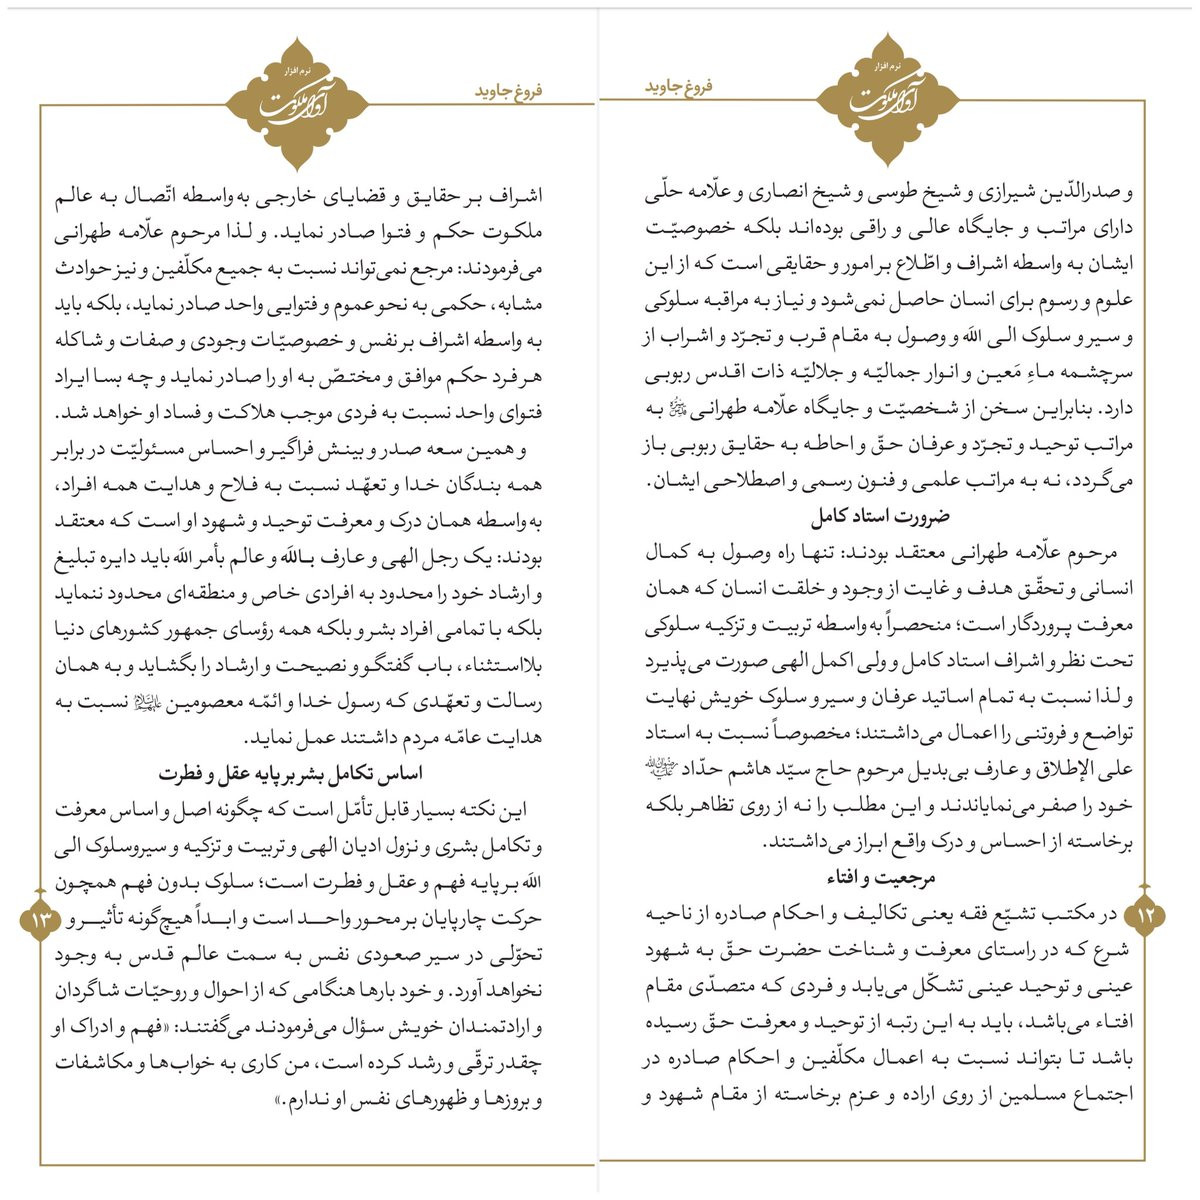 فروغ جاوید
نرم افزار
آوای ملکوت
و صدرالدّین شیرازی و شیخ طوسی و شیخ انصاری و علّامه حلّی
دارای مراتب و جایگاه عالی و راقی بوده‌اند بلکه خصوصیّت
ایشان به واسطه اشراف و اطّلاع بر امور و حقایقی است که از این
علوم و رسوم برای انسان حاصل نمی‌شود و نیاز به مراقبه سلوکی
و سیر و سلوک الی الله و وصول به مقام قرب و تجرّد و اشراب از
سرچشمه ماءِ مَعین و انوار جمالیّه و جلالیّه ذات اقدس ربوبی
دارد. بنابراین سخن از شخصیّت و جایگاه علّامه طهرانی قدّس سرّه به
مراتب توحید و تجرّد و عرفان حقّ و احاطه به حقایق ربوبی باز
می‌گردد، نه به مراتب علمی و فنون رسمی و اصطلاحی ایشان.
ضرورت استاد کامل
مرحوم علّامه طهرانی معتقد بودند: تنها راه وصول به کمال
انسانی و تحقّق هدف و غایت از وجود و خلقت انسان که همان
معرفت پروردگار است؛ منحصراً به‌واسطه تربیت و تزکیه سلوکی
تحت نظر و اشراف استاد کامل و ولی اکمل الهی صورت می‌پذیرد
و لذا نسبت به تمام اساتید عرفان و سیر و سلوک خویش نهایت
تواضع و فروتنی را اعمال می‌داشتند؛ مخصوصاً نسبت به استاد
علی الإطلاق و عارف بی‌بدیل مرحوم حاج سیّد هاشم حدّاد رضوان الله علیه
خود را صفر می‌نمایاندند و این مطلب را نه از روی تظاهر بلکه
برخاسته از احساس و درک واقع ابراز می‌داشتند.
مرجعیت و افتاء
در مکتب تشیّع فقه یعنی تکالیف و احکام صادره از ناحیه
شرع که در راستای معرفت و شناخت حضرت حقّ به شهود
عینی و توحید عینی تشکّل می‌یابد و فردی که متصدّی مقام
افتاء می‌باشد، باید به این رتبه از توحید و معرفت حقّ رسیده
باشد تا بتواند نسبت به اعمال مکلّفین و احکام صادره در
اجتماع مسلمین از روی اراده و عزم برخاسته از مقام شهود و
۱۲
فروغ جاوید
نرم افزار
آوای ملکوت
اشراف بر حقایق و قضایای خارجی به‌واسطه اتّصال به عالم
ملکوت حکم و فتوا صادر نماید. و لذا مرحوم علّامه طهرانی
می‌فرمودند: مرجع نمی‌تواند نسبت به جمیع مکلّفین و نیز حوادث
مشابه، حکمی به نحو عموم و فتوایی واحد صادر نماید، بلکه باید
به واسطه اشراف بر نفس و خصوصیّات وجودی و صفات و شاکله
هر فرد حکم موافق و مختصّ به او را صادر نماید و چه بسا ایراد
فتوای واحد نسبت به فردی موجب هلاکت و فساد او خواهد شد.
و همین سعه صدر و بینش فراگیر و احساس مسئولیّت در برابر
همه بندگان خدا و تعهّد نسبت به فلاح و هدایت همه افراد،
به‌واسطه همان درک و معرفت توحید و شهود او است که معتقد
بودند: یک رجل الهی و عارف بالله و عالم بأمر الله باید دایره تبلیغ
و ارشاد خود را محدود به افرادی خاص و منطقه‌ای محدود ننماید
بلکه با تمامی افراد بشر و بلکه همه رؤسای جمهور کشورهای دنیا
بلااستثناء، باب گفتگو و نصیحت و ارشاد را بگشاید و به همان
رسالت و تعهّدی که رسول خدا و ائمّه معصومین علیهم السّلام نسبت به
هدایت عامّه مردم داشتند عمل نماید.
اساس تکامل بشر بر پایه عقل و فطرت
این نکته بسیار قابل تأمّل است که چگونه اصل و اساس معرفت
و تکامل بشری و نزول ادیان الهی و تربیت و تزکیه و سیروسلوک الی
الله بر پایه فهم و عقل و فطرت است؛ سلوک بدون فهم همچون
حرکت چارپایان بر محور واحد است و ابداً هیچ‌گونه تأثیر و
تحوّلی در سیر صعودی نفس به سمت عالم قدس به وجود
نخواهد آورد. و خود بارها هنگامی که از احوال و روحیّات شاگردان
و ارادتمندان خویش سؤال می‌فرمودند می‌گفتند: «فهم و ادراک او
چقدر ترقّی و رشد کرده است، من کاری به خواب‌ها و مکاشفات
و بروزها و ظهورهای نفس او ندارم.»
۱۳